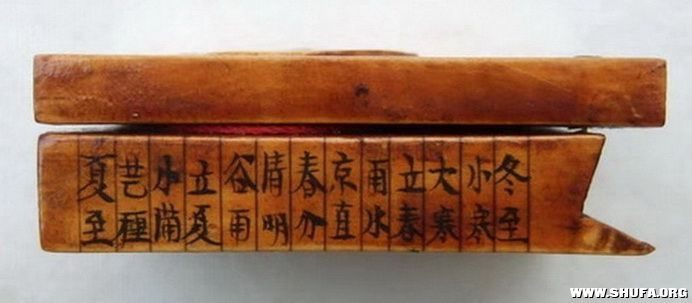 冬至
小寒
大寒
立春
雨水
京直
春分
清明
谷雨
立夏
小満
芒種
夏至
WWW.SHUFA.ORG